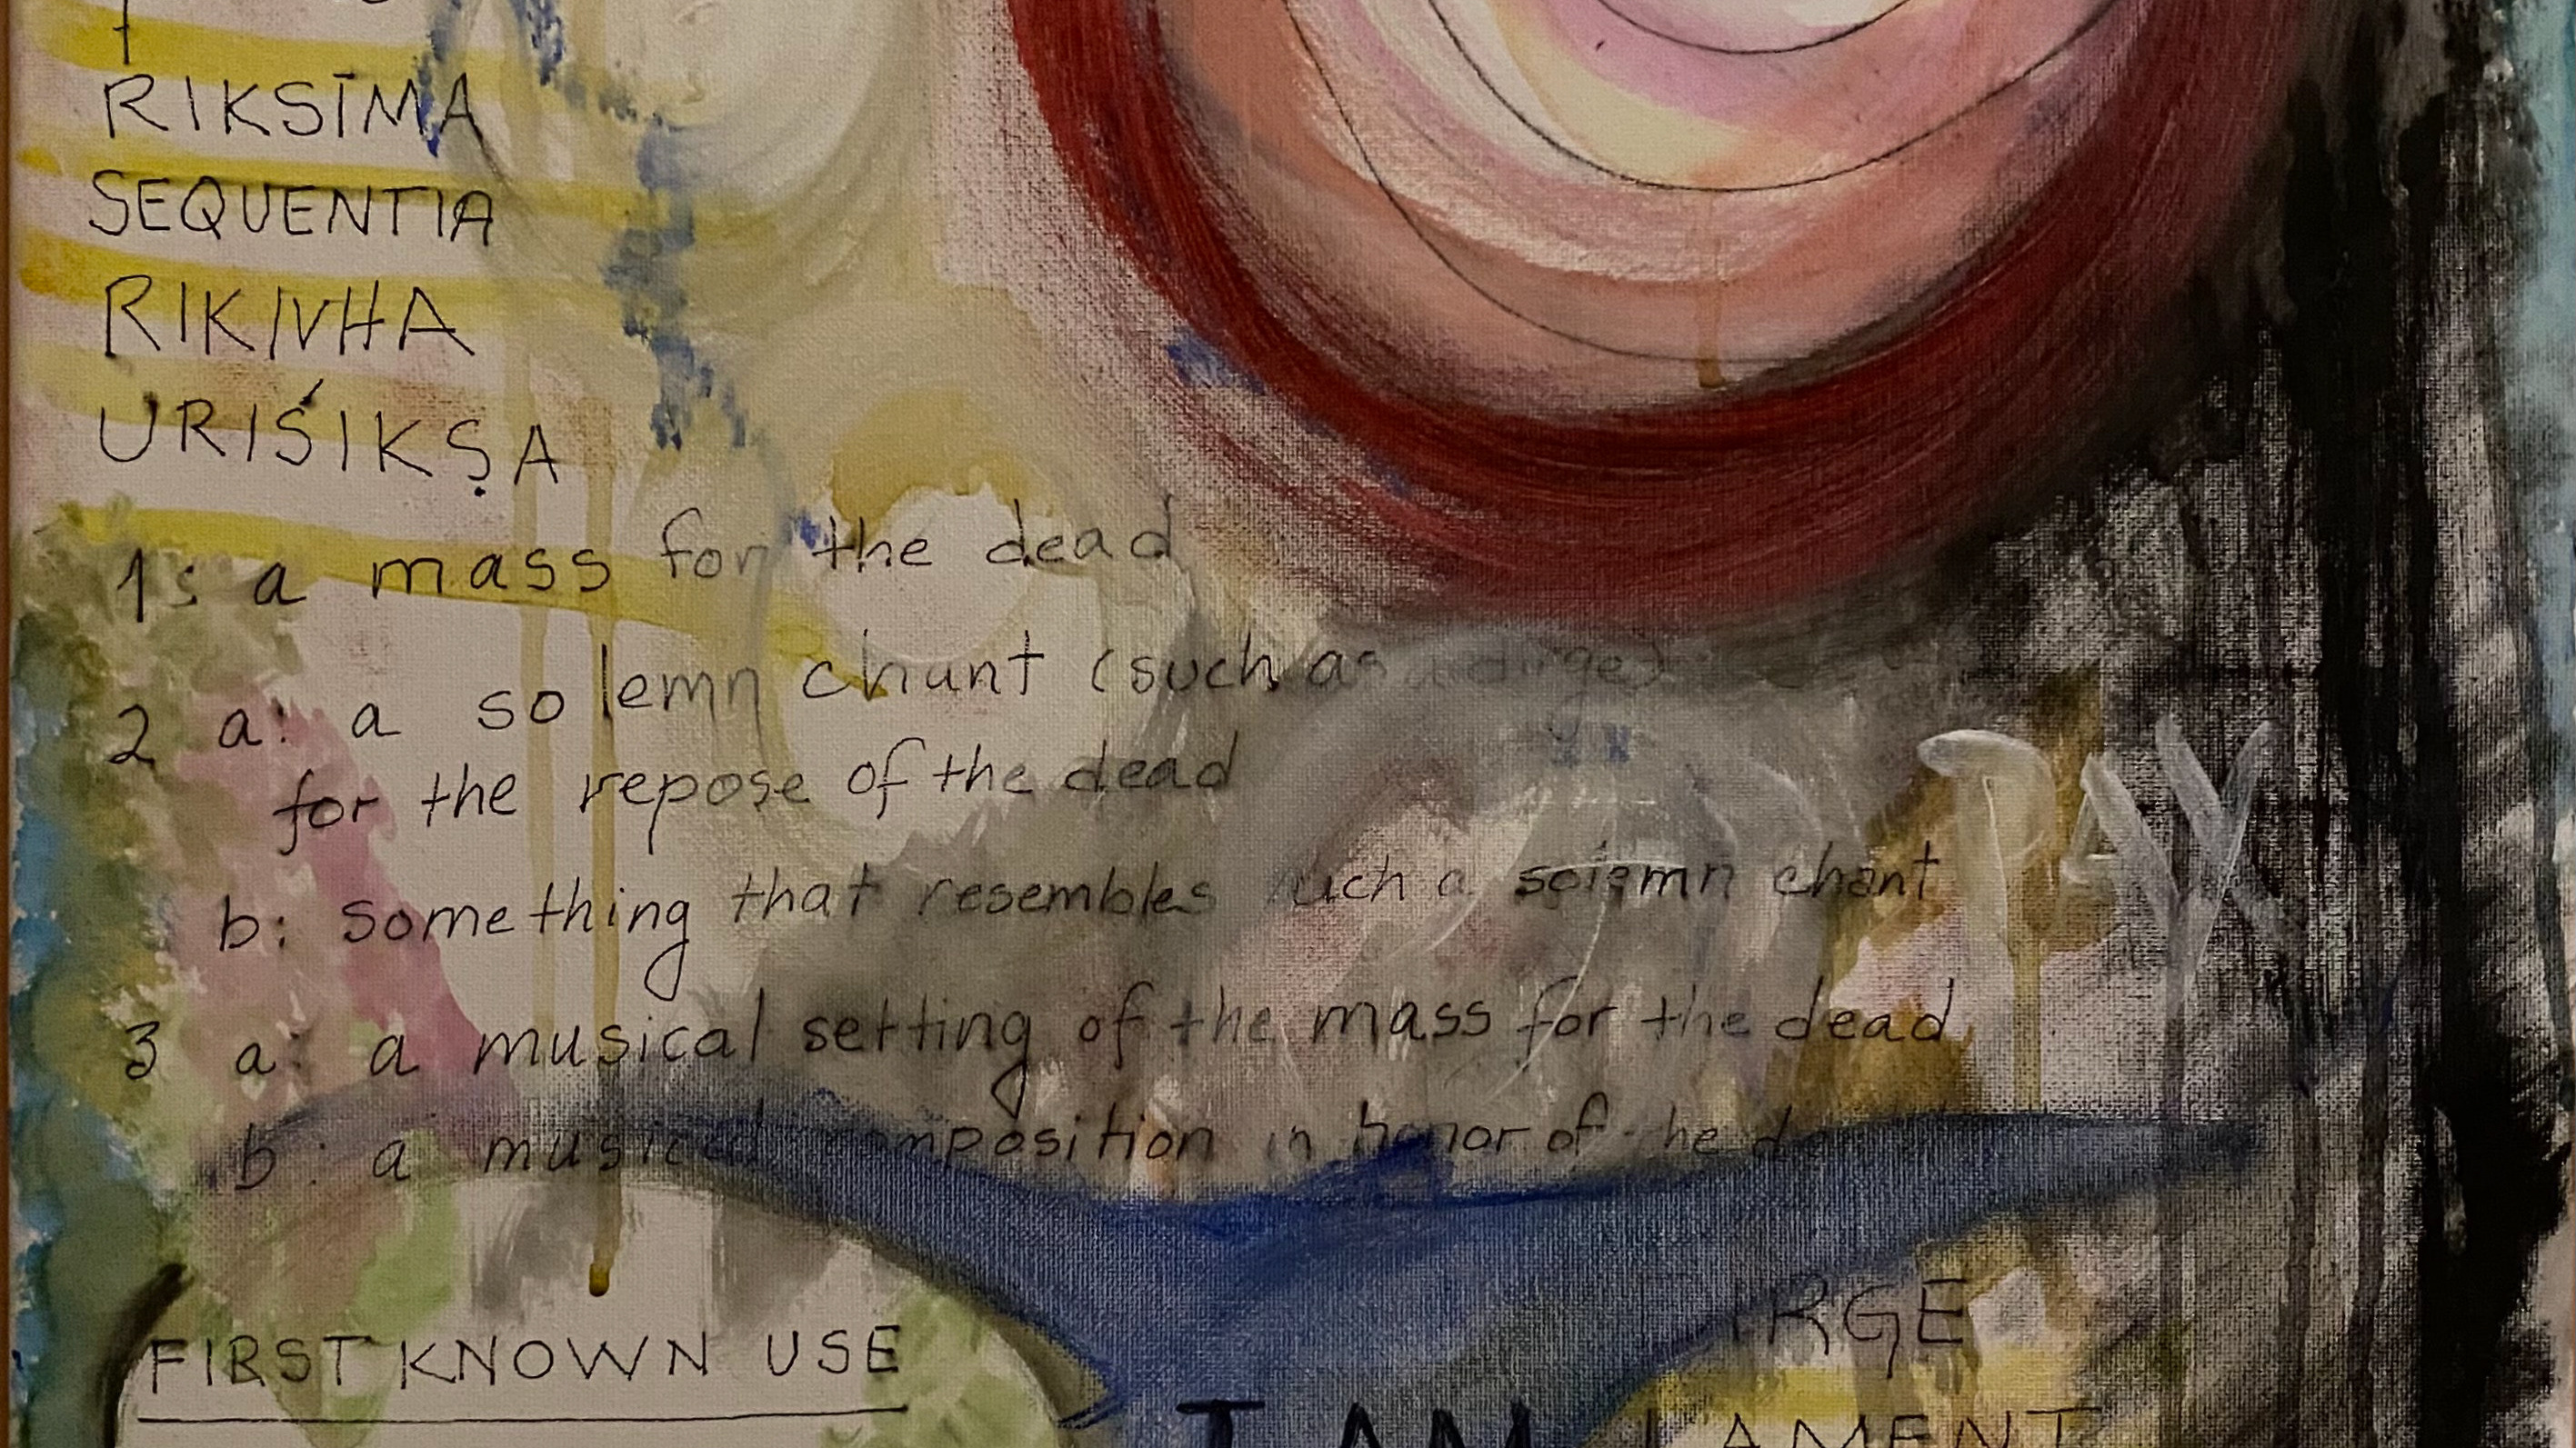 RIKSĪMA
SEQUENTIA
RIKIVHA
URIŚIKṢA
1: a mass for the dead
2 a: a solemn chant (such as a dirge)
for the repose of the dead
b: something that resembles such a solemn chant
3 a: a musical setting of the mass for the dead
b: a musical composition in honor of the
PAX
FIRST KNOWN USE
I AM LAMENT